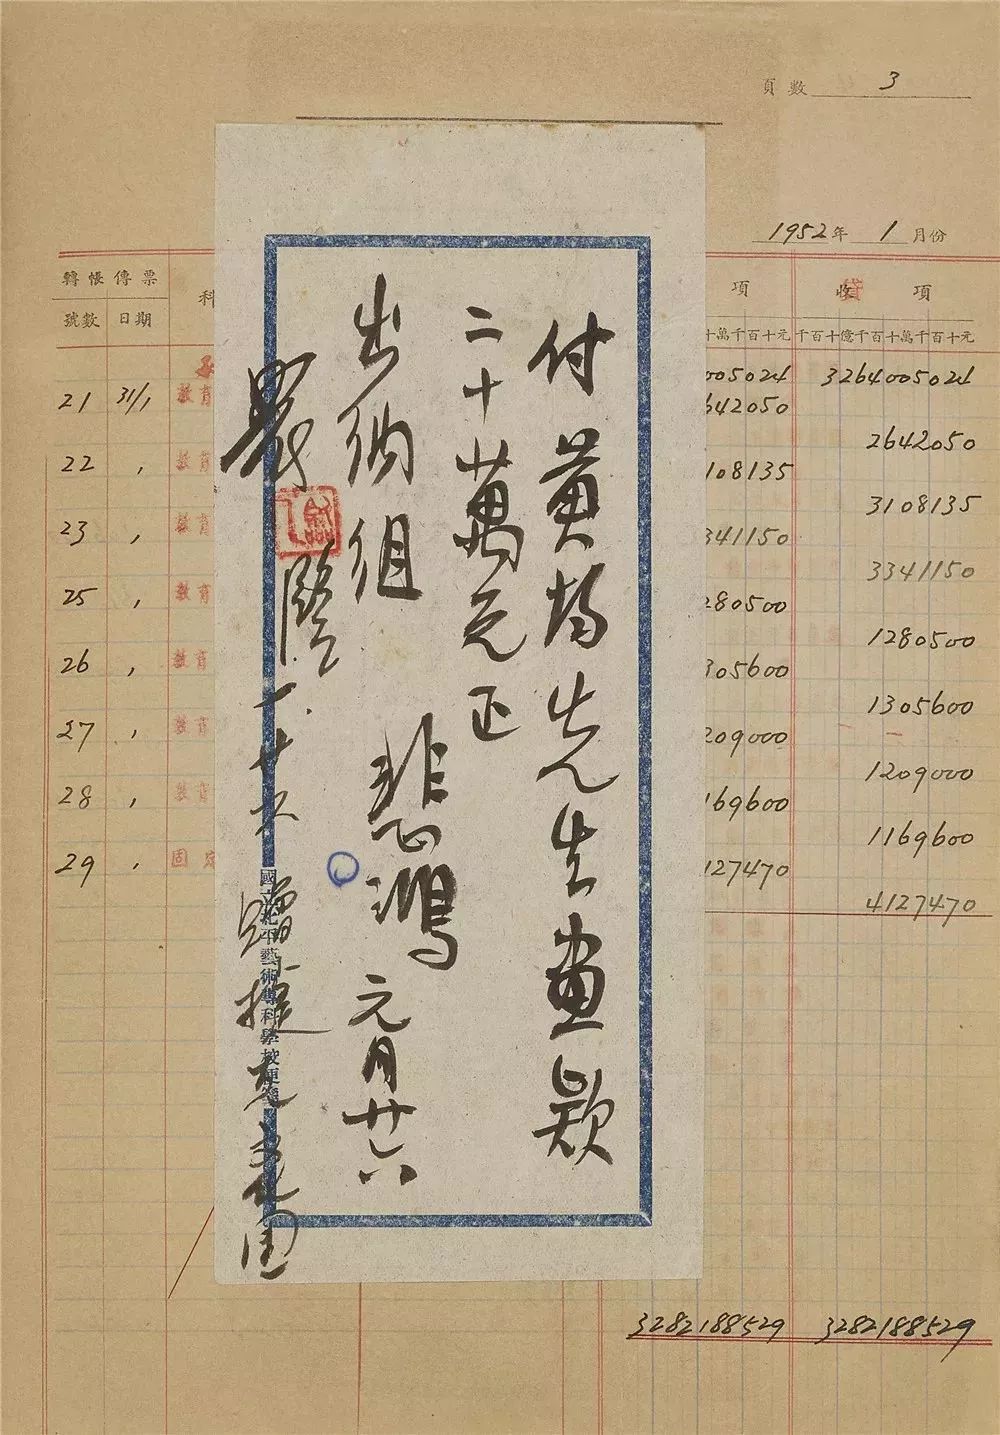 頁數 3
1952年 1月份
轉帳傳票
科
項
貸
收 項
號數 日期
十萬千百十元 千百十億千百十萬千百十元
005024 3264005024
21 31/1 教育 642050
2642050
22 , 教育 108135
3108135
23 , 教育 341150
3341150
25 , 教育 280500
1280500
26 , 教育 305600
1305600
27 , 教育 209000
1209000
28 , 教育 169600
1169600
29 , 固定 127470
4127470
3282188529 3282188529
付黃均先生畫款
二十萬元正
出納組
悲鴻 元月廿六
國立北平藝術專科學校便箋